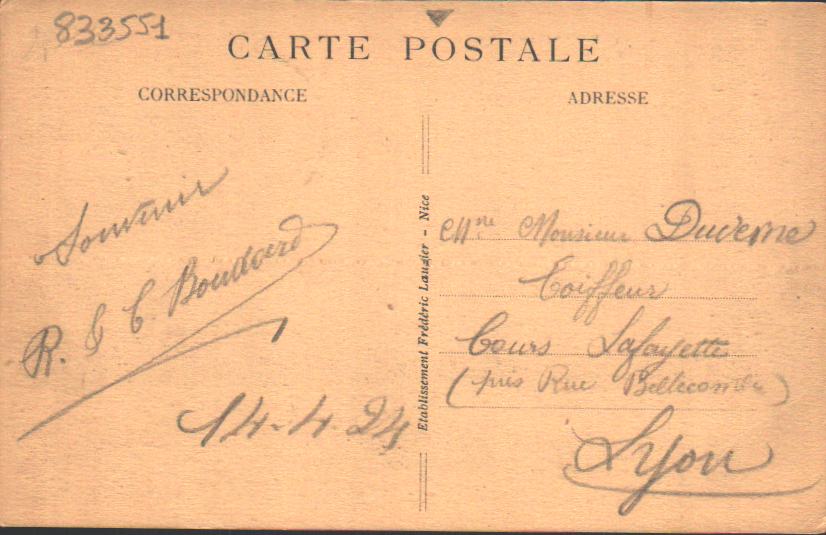 833551
CARTE POSTALE
CORRESPONDANCE
ADRESSE
Souvenir
R. & C. Boudard
14-4.24
Etablissement Frédéric Laugier - Nice
Mme Monsieur Duverne
Coiffeur
Cours Lafayette
(près Rue Bellecombe)
Lyon